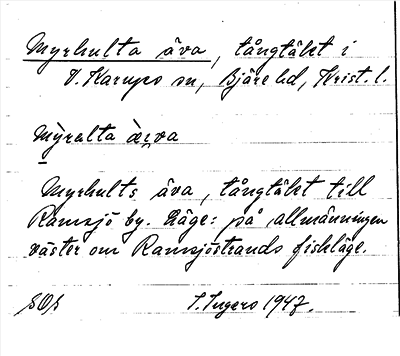 Myrhults äva, tångtäkt i
V. Karups sn, Bjäre hd, Krist. l.
Myrhults äva, tångtäkt till
Ramsjö by. Läge: på allmänningen
väster om Ramsjöstrands fiskläge.
S. Ingers 1947.